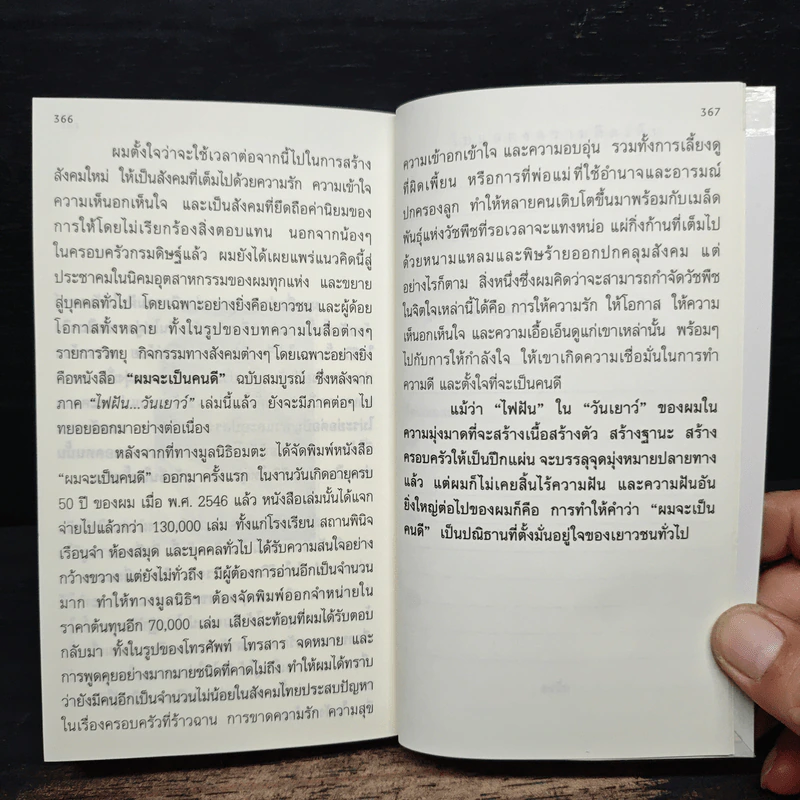 366
ผมตั้งใจว่าจะใช้เวลาต่อจากนี้ไปในการสร้าง
สังคมใหม่ ให้เป็นสังคมที่เต็มไปด้วยความรัก ความเข้าใจ
ความเห็นอกเห็นใจ และเป็นสังคมที่ยึดถือค่านิยมของ
การให้โดยไม่เรียกร้องสิ่งตอบแทน นอกจากน้องๆ
ในครอบครัวกรมดิษฐ์แล้ว ผมยังได้เผยแพร่แนวคิดนี้สู่
ประชาคมในนิคมอุตสาหกรรมของผมทุกแห่ง และขยาย
สู่บุคคลทั่วไป โดยเฉพาะอย่างยิ่งคือเยาวชน และผู้ด้อย
โอกาสทั้งหลาย ทั้งในรูปของบทความในสื่อต่างๆ
รายการวิทยุ กิจกรรมทางสังคมต่างๆ โดยเฉพาะอย่างยิ่ง
คือหนังสือ “ผมจะเป็นคนดี” ฉบับสมบูรณ์ ซึ่งหลังจาก
ภาค “ไฟฝัน...วันเยาว์” เล่มนี้แล้ว ยังจะมีภาคต่อๆ ไป
ทยอยออกมาอย่างต่อเนื่อง
หลังจากที่ทางมูลนิธิอมตะ ได้จัดพิมพ์หนังสือ
“ผมจะเป็นคนดี” ออกมาครั้งแรก ในงานวันเกิดอายุครบ
50 ปี ของผม เมื่อ พ.ศ. 2546 แล้ว หนังสือเล่มนั้นได้แจก
จ่ายไปแล้วกว่า 130,000 เล่ม ทั้งแก่โรงเรียน สถานพินิจ
เรือนจำ ห้องสมุด และบุคคลทั่วไป ได้รับความสนใจอย่าง
กว้างขวาง แต่ยังไม่ทั่วถึง มีผู้ต้องการอ่านอีกเป็นจำนวน
มาก ทำให้ทางมูลนิธิฯ ต้องจัดพิมพ์ออกจำหน่ายใน
ราคาต้นทุนอีก 70,000 เล่ม เสียงสะท้อนที่ผมได้รับตอบ
กลับมา ทั้งในรูปของโทรศัพท์ โทรสาร จดหมาย และ
การพูดคุยอย่างมากมายชนิดที่คาดไม่ถึง ทำให้ผมได้ทราบ
ว่ายังมีคนอีกเป็นจำนวนไม่น้อยในสังคมไทยประสบปัญหา
ในเรื่องครอบครัวที่ร้าวฉาน การขาดความรัก ความสุข
367
ความเข้าอกเข้าใจ และความอบอุ่น รวมทั้งการเลี้ยงดู
ที่ผิดเพี้ยน หรือการที่พ่อแม่ที่ใช้อำนาจและอารมณ์
ปกครองลูก ทำให้หลายคนเติบโตขึ้นมาพร้อมกับเมล็ด
พันธุ์แห่งวัชพืชที่รอเวลาจะแทงหน่อ แผ่กิ่งก้านที่เต็มไป
ด้วยหนามแหลมและพิษร้ายออกปกคลุมสังคม แต่
อย่างไรก็ตาม สิ่งหนึ่งซึ่งผมคิดว่าจะสามารถกำจัดวัชพืช
ในจิตใจเหล่านี้ได้คือ การให้ความรัก ให้โอกาส ให้ความ
เห็นอกเห็นใจ และความเอื้อเอ็นดูแก่เขาเหล่านั้น พร้อมๆ
ไปกับการให้กำลังใจ ให้เขาเกิดความเชื่อมั่นในการทำ
ความดี และตั้งใจที่จะเป็นคนดี
แม้ว่า “ไฟฝัน” ใน “วันเยาว์” ของผมใน
ความมุ่งมาดที่จะสร้างเนื้อสร้างตัว สร้างฐานะ สร้าง
ครอบครัวให้เป็นปึกแผ่น จะบรรลุจุดมุ่งหมายปลายทาง
แล้ว แต่ผมก็ไม่เคยสิ้นไร้ความฝัน และความฝันอัน
ยิ่งใหญ่ต่อไปของผมก็คือ การทำให้คำว่า “ผมจะเป็น
คนดี” เป็นปณิธานที่ตั้งมั่นอยู่ใจของเยาวชนทั่วไป